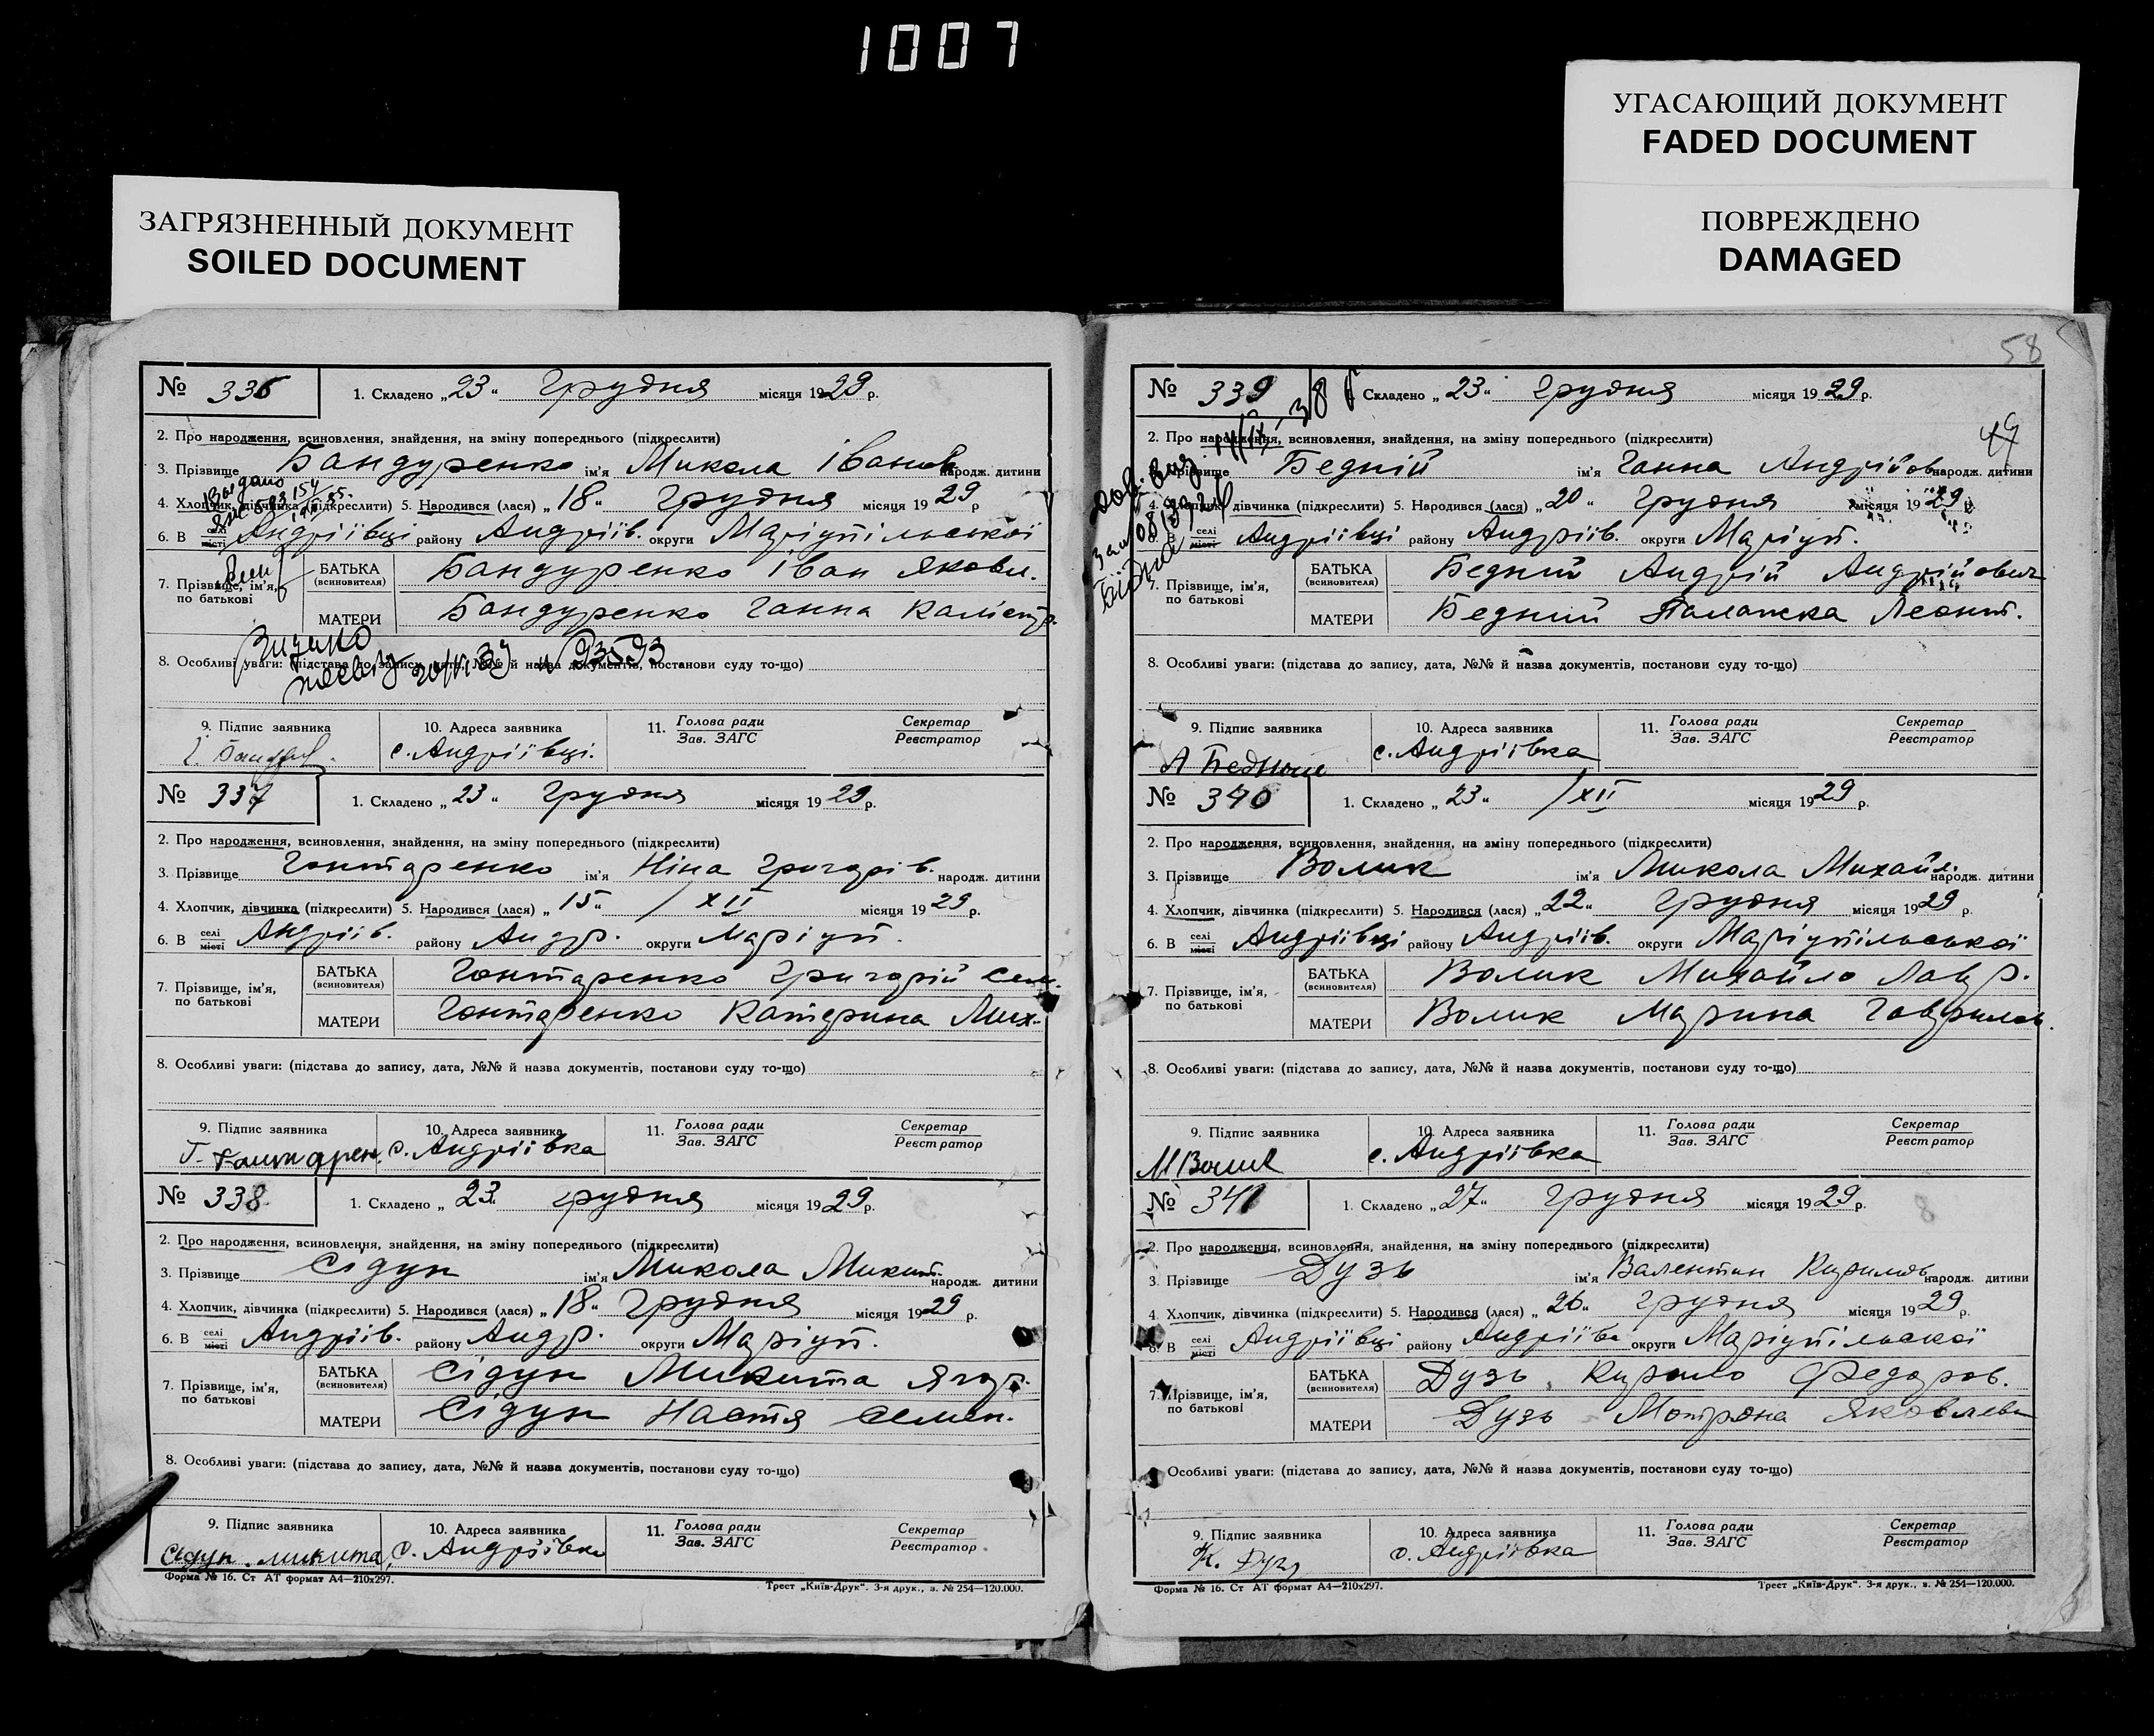 1007
УГАСАЮЩИЙ ДОКУМЕНТ
FADED DOCUMENT
ЗАГРЯЗНЕННЫЙ ДОКУМЕНТ
SOILED DOCUMENT
ПОВРЕЖДЕНО
DAMAGED
№ 336 1. Складено „23“ Грудня місяця 1929 р.
2. Про народження, всиновлення, знайдення, на зміну попереднього (підкреслити)
3. Прізвище Бандуренко ім'я Микола Іванов. народж. дитини
4. Хлопчик, дівчинка (підкреслити) 5. Народився (лася) „18“ Грудня місяця 1929 р
6. В селі місті Андріївці району Андріїв. округи Маріупільської
7. Прізвище, ім'я, по батькові
БАТЬКА (всиновителя) Бандуренко Іван Яковл.
МАТЕРИ Бандуренко Ганна Калістр.
8. Особливі уваги: (підстава до запису, дата, №№ й назва документів, постанови суду то-що)
9. Підпис заявника 10. Адреса заявника 11. Голова ради Зав. ЗАГС Секретар Реєстратор
с. Андріївці.
№ 337 1. Складено „23“ Грудня місяця 1929 р.
2. Про народження, всиновлення, знайдення, на зміну попереднього (підкреслити)
3. Прізвище Гонтаренко ім'я Ніна Григорів. народж. дитини
4. Хлопчик, дівчинка (підкреслити) 5. Народився (лася) „15“ / XII місяця 1929 р.
6. В селі місті Андріїв. району Андр. округи Маріуп.
7. Прізвище, ім'я, по батькові
БАТЬКА (всиновителя) Гонтаренко Григорій Сем.
МАТЕРИ Гонтаренко Катерина Мих.
8. Особливі уваги: (підстава до запису, дата, №№ й назва документів, постанови суду то-що)
9. Підпис заявника 10. Адреса заявника 11. Голова ради Зав. ЗАГС Секретар Реєстратор
с. Андріївка
№ 338 1. Складено „23“ грудня місяця 1929 р.
2. Про народження, всиновлення, знайдення, на зміну попереднього (підкреслити)
3. Прізвище Сідун ім'я Микола Микит. народж. дитини
4. Хлопчик, дівчинка (підкреслити) 5. Народився (лася) „18“ Грудня місяця 1929 р.
6. В селі місті Андріїв. району Андр. округи Маріуп.
7. Прізвище, ім'я, по батькові
БАТЬКА (всиновителя) Сідун Микита Ягор.
МАТЕРИ Сідун Настя Семен.
8. Особливі уваги: (підстава до запису, дата, №№ й назва документів, постанови суду то-що)
9. Підпис заявника 10. Адреса заявника 11. Голова ради Зав. ЗАГС Секретар Реєстратор
Сідун микита с. Андріївка
Форма № 16. Ст АТ формат А4—210х297. Трест „Київ-Друк“. 3-я друк., з. № 254—120.000.
58
49
№ 339 1. Складено „23“ Грудня місяця 1929 р.
2. Про народження, всиновлення, знайдення, на зміну попереднього (підкреслити)
3. Прізвище Бедній ім'я Ганна Андрійов. народж. дитини
4. Хлопчик, дівчинка (підкреслити) 5. Народився (лася) „20“ Грудня місяця 1929 р.
6. В селі місті Андріївці району Андріїв. округи Маріуп.
7. Прізвище, ім'я, по батькові
БАТЬКА (всиновителя) Бедний Андрій Андрійович
МАТЕРИ Бедний Палажка Леонт.
8. Особливі уваги: (підстава до запису, дата, №№ й назва документів, постанови суду то-що)
9. Підпис заявника 10. Адреса заявника 11. Голова ради Зав. ЗАГС Секретар Реєстратор
с. Андріївка
№ 340 1. Складено „23“ /XII місяця 1929 р.
2. Про народження, всиновлення, знайдення, на зміну попереднього (підкреслити)
3. Прізвище Волик ім'я Микола Михайл. народж. дитини
4. Хлопчик, дівчинка (підкреслити) 5. Народився (лася) „22“ Грудня місяця 1929 р.
6. В селі місті Андріївці району Андріїв. округи Маріупільської
7. Прізвище, ім'я, по батькові
БАТЬКА (всиновителя) Волик Михайло Лавр.
МАТЕРИ Волик Марина Гаврилов.
8. Особливі уваги: (підстава до запису, дата, №№ й назва документів, постанови суду то-що)
9. Підпис заявника 10. Адреса заявника 11. Голова ради Зав. ЗАГС Секретар Реєстратор
М Волик с. Андріївка
№ 341 1. Складено „27“ Грудня місяця 1929 р.
2. Про народження, всиновлення, знайдення, на зміну попереднього (підкреслити)
3. Прізвище Дузь ім'я Валентин Кирилов. народж. дитини
4. Хлопчик, дівчинка (підкреслити) 5. Народився (лася) „26“ грудня місяця 1929 р.
6. В селі місті Андріївці району Андріївс округи Маріупільскої
7. Прізвище, ім'я, по батькові
БАТЬКА (всиновителя) Дузь Кирило Федоров.
МАТЕРИ Дузь Мотряна Яковлевн
Особливі уваги: (підстава до запису, дата, №№ й назва документів, постанови суду то-що)
9. Підпис заявника 10. Адреса заявника 11. Голова ради Зав. ЗАГС Секретар Реєстратор
К. Дузь с. Андріївка
Форма № 16. Ст АТ формат А4—210х297. Трест „Київ-Друк“. 3-я друк., з. № 254—120.000.